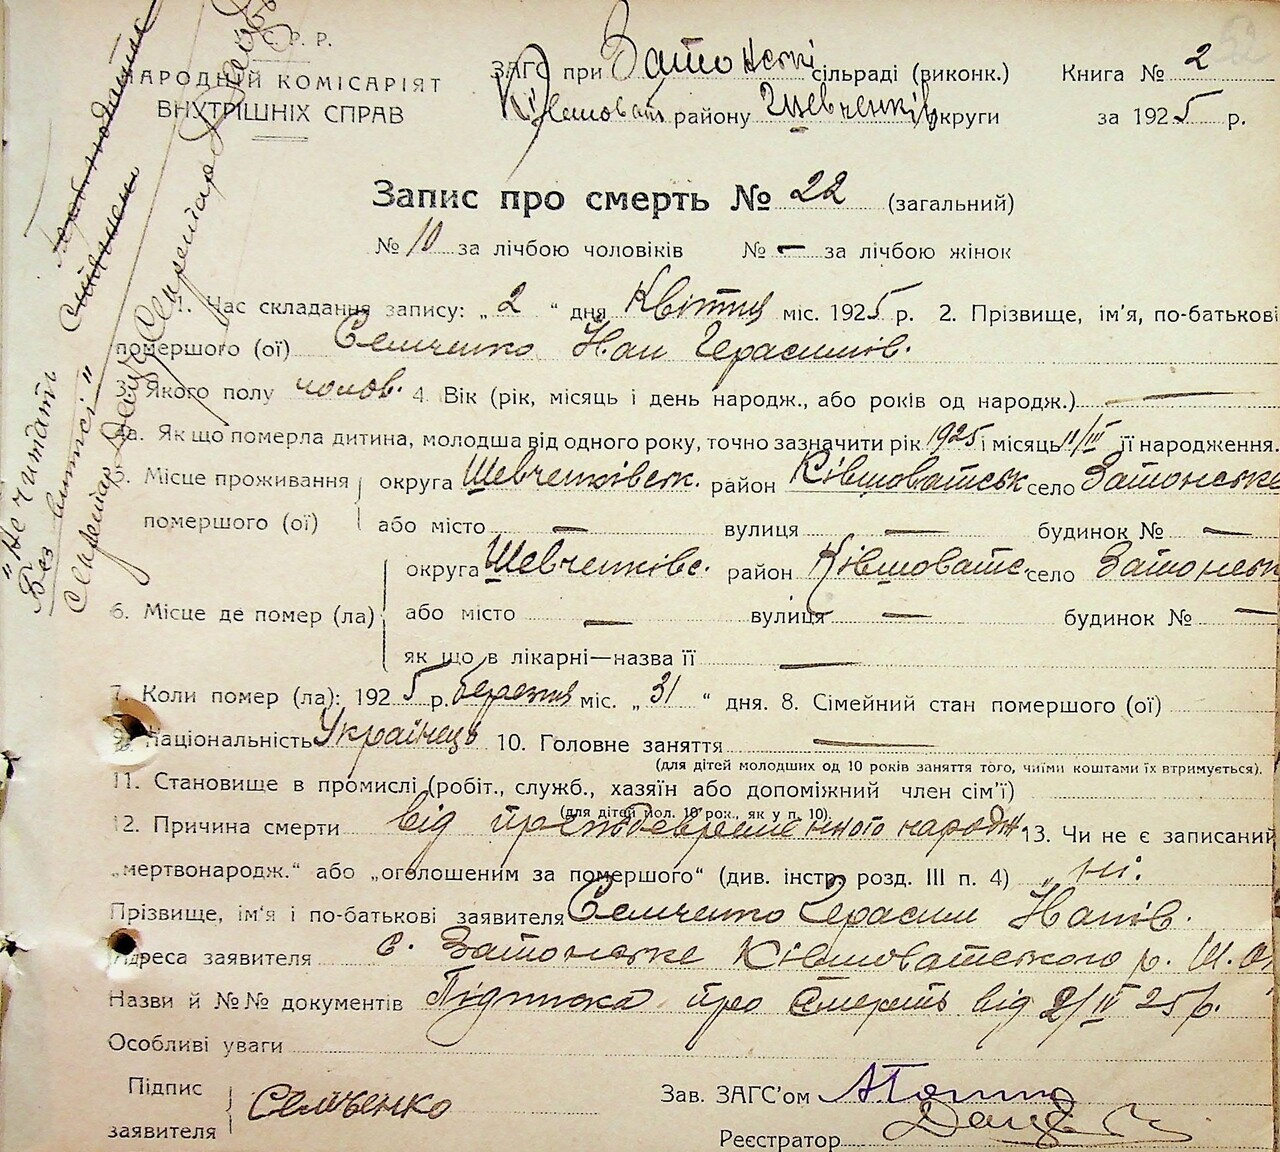 С. Р. Р.
НАРОДНІЙ КОМІСАРІЯТ
ВНУТРІШНІХ СПРАВ
ЗАГС при Затонскі сільраді (виконк.) Книга № 2
Ківшоват. району Шевченків округи за 1925 р.
52
Запис про смерть № 22 (загальний)
№ 10 за лічбою чоловіків № — за лічбою жінок
1. Час складання запису: „ 2 “ дня Квітня міс. 1925 р. 2. Прізвище, ім'я, по-батькові
помершого (ої) Семченко Герасимів.
3. Якого полу чолов. 4. Вік (рік, місяць і день народж., або років од народж.) —
4а. Як що померла дитина, молодша від одного року, точно зазначити рік 1925 і місяць 11/III її народження.
5. Місце проживання округа Шевченківськ. район Ківшоватськ село Затонське
помершого (ої) або місто — вулиця — будинок № —
округа Шевченківс. район Ківшоватс. село Затонськ
6. Місце де помер (ла) або місто — вулиця — будинок № —
як що в лікарні—назва її —
7. Коли помер (ла): 1925 р. березня міс. „ 31 “ дня. 8. Сімейний стан помершого (ої)
9. Національність Українець 10. Головне заняття —
(для дітей молодших од 10 років заняття того, чиїми коштами їх втримується).
11. Становище в промислі (робіт., служб., хазяїн або допоміжний член сім'ї)
(для дітей мол. 10 рок., як у п. 10)
12. Причина смерти від народж 13. Чи не є записаний
„мертвонародж.“ або „оголошеним за помершого“ (див. інстр. розд. III п. 4) „ ні.
Прізвище, ім'я і по-батькові заявителя Семченко Герасим
Адреса заявителя с. Затонське Ківшоватського р. Ш. О.
Назви й №№ документів Підписка про смерть від 2/IV 25 р.
Особливі уваги
Підпис
заявителя Семченко
Зав. ЗАГС'ом
Реєстратор
"Не читать
Без
Секретар
Секретар